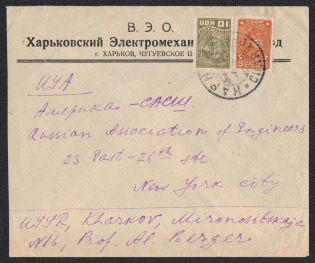 В. Э. О.
Харьковский Электромехан од
г. ХАРЬКОВ, ЧУГУЕВСКОЕ
10 КОП
США
Америка – САСШ
Russian Association of Engineers
23 East – 26th str
New York city
USSR, Kharkov, Mironositskaja
N16, Prof. Al Berger